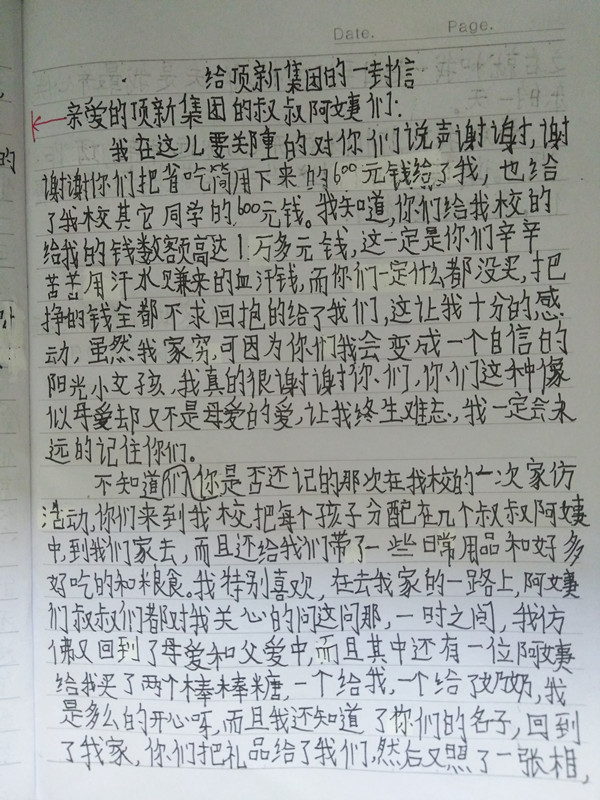 Date. Page.
给顶新集团的一封信
亲爱的顶新集团的叔叔阿姨们:
我在这儿要郑重的对你们说声谢谢谢,谢
谢谢你们把省吃简用下来的600元钱给了我,也给
了我校其它同学的600元钱。我知道,你们给我校的
给我的钱数额高达1万多元钱,这一定是你们辛辛
苦苦用汗水又赚来的血汗钱,而你们一定什么都没买,把
挣的钱全都不求回抱的给了我们,这让我十分的感
动,虽然我家穷,可因为你们我会变成一个自信的
阳光小女孩,我真的很谢谢你们,你们这种像
似母爱却又不是母爱的爱,让我终生难忘,我一定会永
远的记住你们。
不知道们你是否还记的那次在我校的一次家访
活动,你们来到我校,把每个孩子分配在几个叔叔阿姨
中,到我们家去,而且还给我们带了一些日常用品和好多
好吃的和粮食。我特别喜欢,在去我家的一路上,阿姨
们叔叔们都对我关心的问这问那,一时之间,我仿
佛又回到了母爱和父爱中,而且其中还有一位阿姨
给我买了两个棒棒糖,一个给我,一个给了奶奶,我
是多么的开心呀,而且我还知道了你们的名子,回到
了我家,你们把礼品给了我们,然后又照了一张相,
的